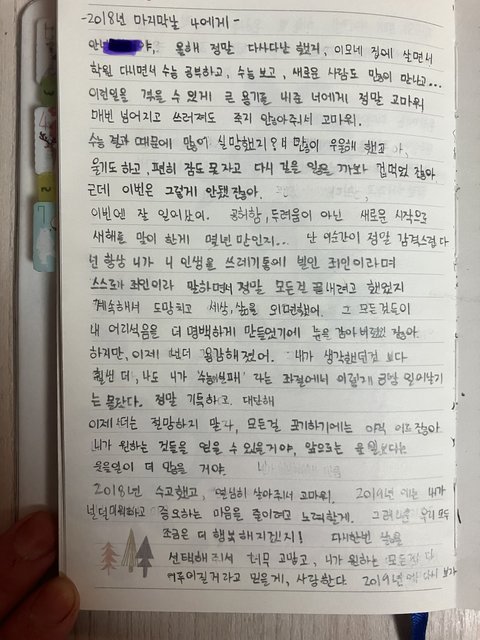 -2018년 마지막날 나에게-
안녕 야, 올해 정말 다사다난 했어, 이모네 집에 살면서
학원 다시면서 수능 공부하고, 수능보고, 새로운 사람도 많이 만나고...
이런일을 겪을 수 있게 큰 용기를 내준 너에게 정말 고마워
매번 넘어지고 쓰러져도 죽지 않아주서 고마워.
수능 결과 때문에 많이 실망했지? 많이 우울해 했고
울기도하고, 편히 잠도 못자고 다시 길을 잃을 까봐 겁먹었잖아
근데 이번은 그렇게 안됐잖아.
이번엔 잘 일어섰어. 공허함, 두려움이 아닌 새로운 시작으로
새해를 맞이 하게 몇년 만인지... 난 이순간이 정말 감격스럽다
넌 항상 니가 니 인생을 쓰레기통에 버린 죄인이라며
스스로가 죄인이라 말하면서 정말 모든걸 끝내려고 했었지
계속해서 도망치고 세상,삶을 외면했어. 그 모든것들이
내 어리석음을 더 명백하게 만들었기에 눈을 감아 버렸잖아.
하지만, 이제 넌 더 용감해졌어. 내가 생각했던것 보다
훨씬 더, 나도 니가 "수능실패" 라는 좌절에서 이렇게 금방 일어나기
는 몰랐다. 정말 기특하고 대단해
이제 너는 절망하지 말자, 모든걸 포기하기에는 아직 이르잖아
니가 원하는 것들을 얻을 수 있을거야, 앞으로는 울 일보다는
웃을일이 더 많을 거야.
2018년 수고했고, 열심히 살아주서 고마워. 2019년 에는 내가
널 덜 미워하고 증오하는 마음을 줄이려고 노력할게. 그래서 우리 모두
조금은 더 행복해지겠지! 다시한번 삶을
선택해줘서 너무 고맙고, 니가 원하는 모든것 다
이루어질거라고 믿을게, 사랑한다. 2019년에 다시 보자